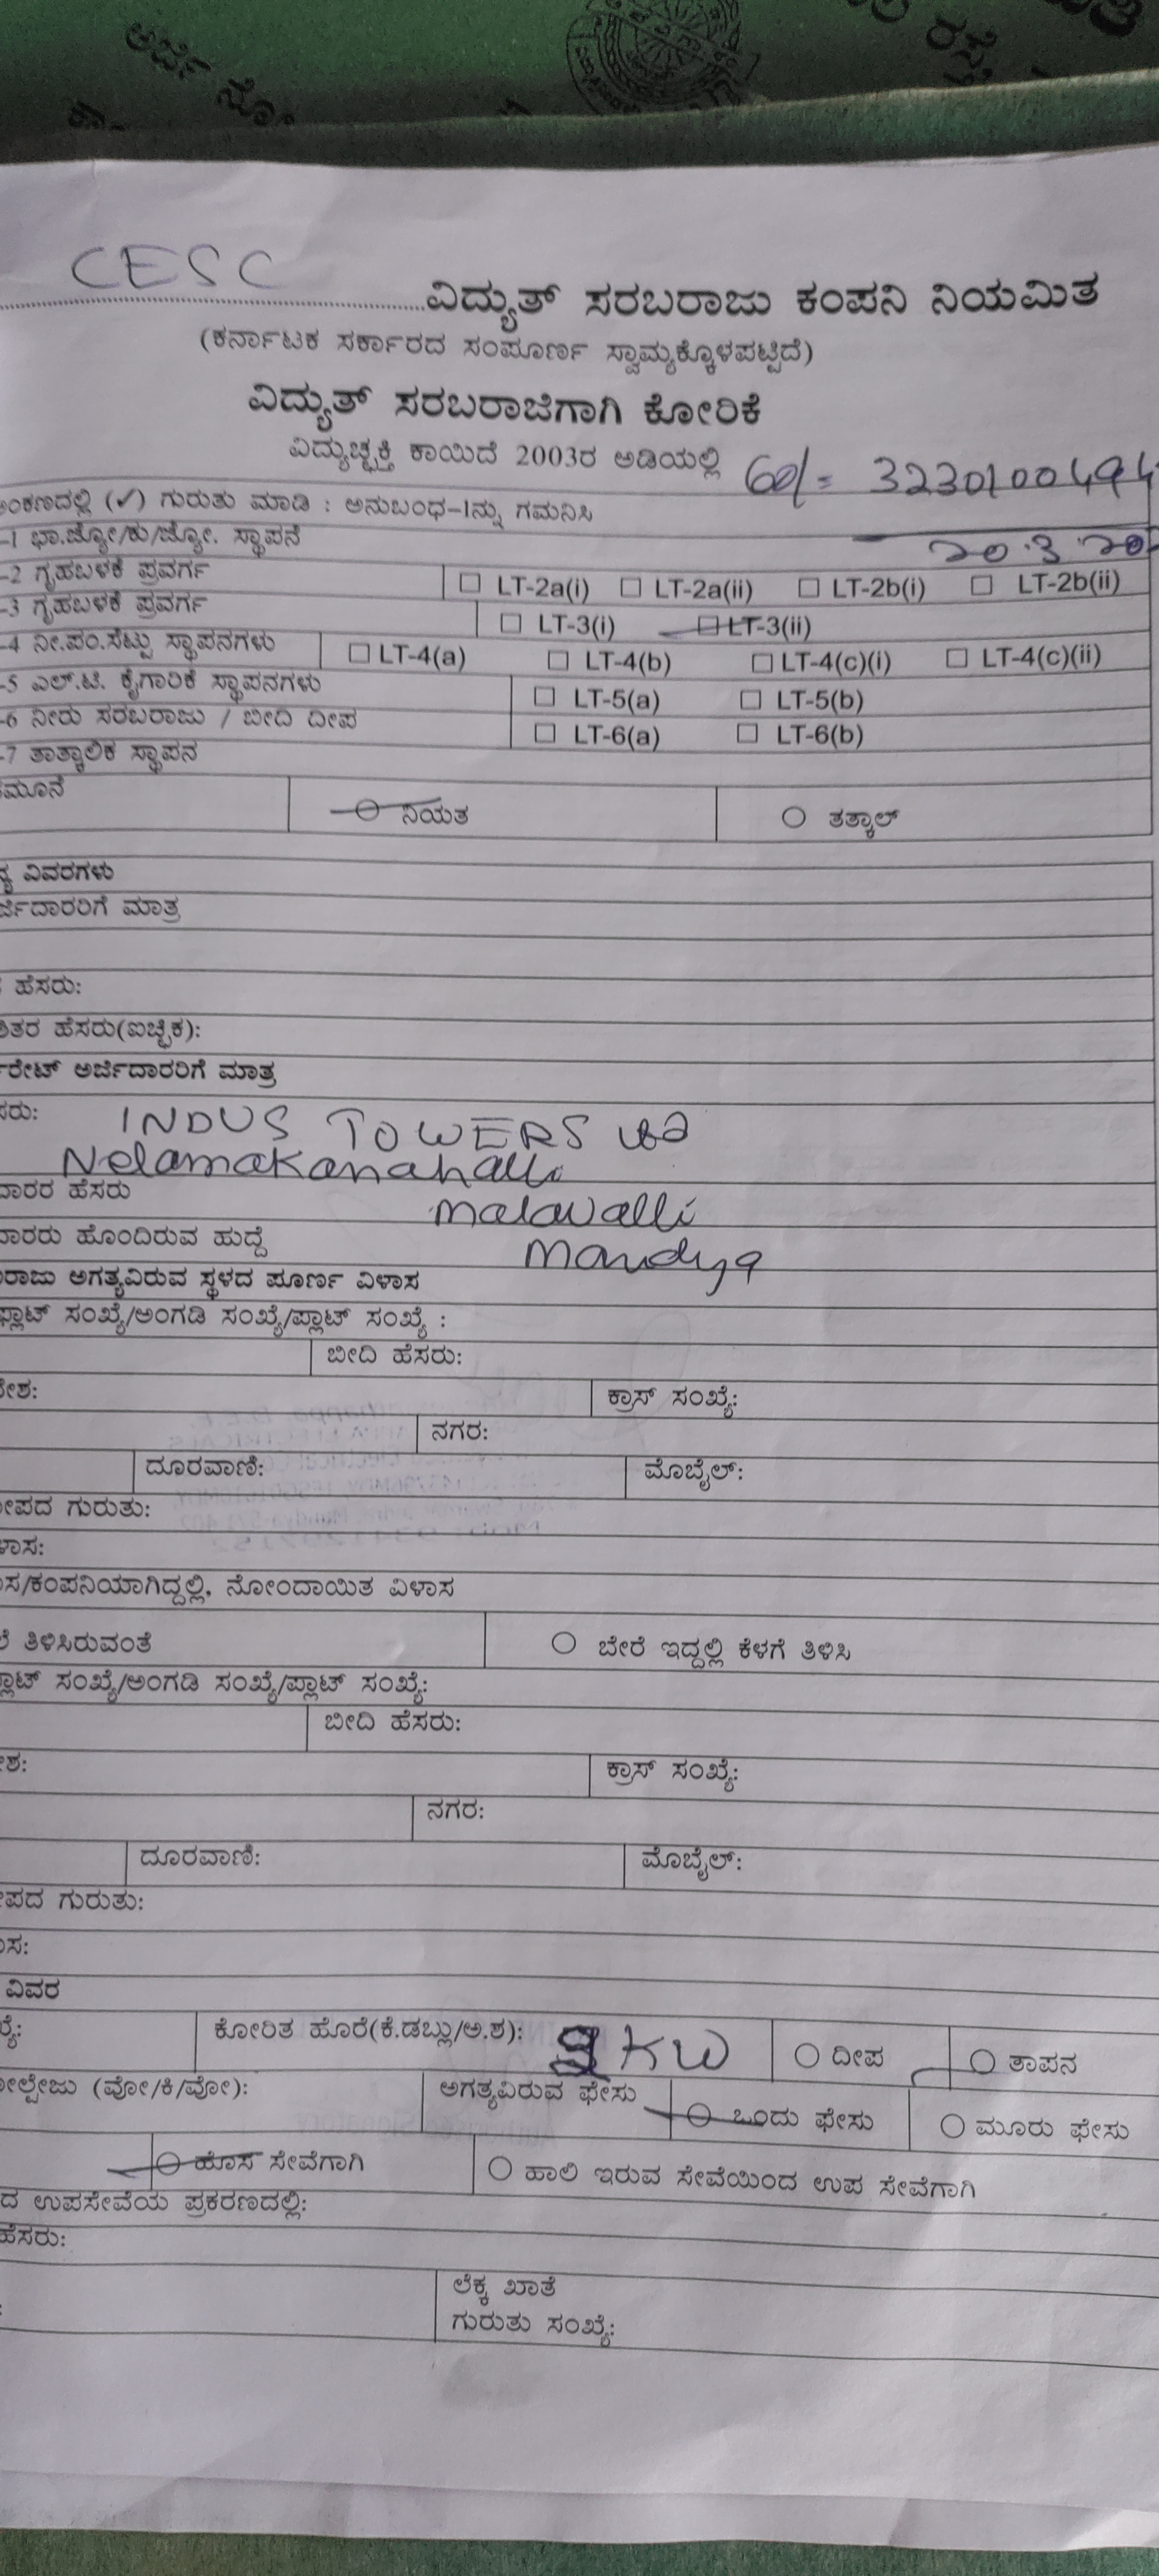 ಅರ್ಜಿ ನೋ
ರಸ್ತೆ
CESC ವಿದ್ಯುತ್ ಸರಬರಾಜು ಕಂಪನಿ ನಿಯಮಿತ
(ಕರ್ನಾಟಕ ಸರ್ಕಾರದ ಸಂಪೂರ್ಣ ಸ್ವಾಮ್ಯಕ್ಕೊಳಪಟ್ಟಿದೆ)
ವಿದ್ಯುತ್ ಸರಬರಾಜಿಗಾಗಿ ಕೋರಿಕೆ
ವಿದ್ಯುಚ್ಛಕ್ತಿ ಕಾಯಿದೆ 2003ರ ಅಡಿಯಲ್ಲಿ 60/= 32301100494
ಅಂಕಣದಲ್ಲಿ (✓) ಗುರುತು ಮಾಡಿ : ಅನುಬಂಧ-1ನ್ನು ಗಮನಿಸಿ
-1 ಭಾ.ಜ್ಯೋ/ಕು/ಜ್ಯೋ. ಸ್ಥಾಪನೆ 20.3.20
-2 ಗೃಹಬಳಕೆ ಪ್ರವರ್ಗ □ LT-2a(i) □ LT-2a(ii) □ LT-2b(i) □ LT-2b(ii)
-3 ಗೃಹಬಳಕೆ ಪ್ರವರ್ಗ □ LT-3(i) □ LT-3(ii)
-4 ನೀ.ಪಂ.ಸೆಟ್ಟು ಸ್ಥಾಪನಗಳು □ LT-4(a) □ LT-4(b) □ LT-4(c)(i) □ LT-4(c)(ii)
-5 ಎಲ್.ಟಿ. ಕೈಗಾರಿಕೆ ಸ್ಥಾಪನಗಳು □ LT-5(a) □ LT-5(b)
-6 ನೀರು ಸರಬರಾಜು / ಬೀದಿ ದೀಪ □ LT-6(a) □ LT-6(b)
-7 ತಾತ್ಕಾಲಿಕ ಸ್ಥಾಪನ
ಮೂನೆ ○ ನಿಯತ ○ ತತ್ಕಾಲ್
ವಿವರಗಳು
ರ್ಜಿದಾರರಿಗೆ ಮಾತ್ರ
ಹೆಸರು:
ತರ ಹೆಸರು(ಐಚ್ಛಿಕ):
ರೇಟ್ ಅರ್ಜಿದಾರರಿಗೆ ಮಾತ್ರ
ಸರು: INDUS TOWERS Ltd
Nelamakanahalli
ದಾರರ ಹೆಸರು malavalli
ದಾರರು ಹೊಂದಿರುವ ಹುದ್ದೆ Mandya
ರಾಜು ಅಗತ್ಯವಿರುವ ಸ್ಥಳದ ಪೂರ್ಣ ವಿಳಾಸ
ಫ್ಲಾಟ್ ಸಂಖ್ಯೆ/ಅಂಗಡಿ ಸಂಖ್ಯೆ/ಪ್ಲಾಟ್ ಸಂಖ್ಯೆ :
ಬೀದಿ ಹೆಸರು:
ದೇಶ: ಕ್ರಾಸ್ ಸಂಖ್ಯೆ:
ನಗರ:
ದೂರವಾಣಿ: ಮೊಬೈಲ್:
ೀಪದ ಗುರುತು:
ಳಾಸ:
ಸ/ಕಂಪನಿಯಾಗಿದ್ದಲ್ಲಿ, ನೋಂದಾಯಿತ ವಿಳಾಸ
ಲೆ ತಿಳಿಸಿರುವಂತೆ ○ ಬೇರೆ ಇದ್ದಲ್ಲಿ ಕೆಳಗೆ ತಿಳಿಸಿ
್ಲಾಟ್ ಸಂಖ್ಯೆ/ಅಂಗಡಿ ಸಂಖ್ಯೆ/ಪ್ಲಾಟ್ ಸಂಖ್ಯೆ:
ಬೀದಿ ಹೆಸರು:
ಶ: ಕ್ರಾಸ್ ಸಂಖ್ಯೆ:
ನಗರ:
ದೂರವಾಣಿ: ಮೊಬೈಲ್:
ಪದ ಗುರುತು:
ಸ:
ವಿವರ
ಕೋರಿತ ಹೊರೆ(ಕೆ.ಡಬ್ಲು/ಅ.ಶ): 9 KW ○ ದೀಪ ○ ತಾಪನ
ೋಲ್ಟೇಜು (ವೋ/ಕಿ/ವೋ): ಅಗತ್ಯವಿರುವ ಫೇಸು ○ ಒಂದು ಫೇಸು ○ ಮೂರು ಫೇಸು
○ ಹೊಸ ಸೇವೆಗಾಗಿ ○ ಹಾಲಿ ಇರುವ ಸೇವೆಯಿಂದ ಉಪ ಸೇವೆಗಾಗಿ
ದ ಉಪಸೇವೆಯ ಪ್ರಕರಣದಲ್ಲಿ:
ಹೆಸರು:
ಲೆಕ್ಕ ಖಾತೆ
ಗುರುತು ಸಂಖ್ಯೆ: